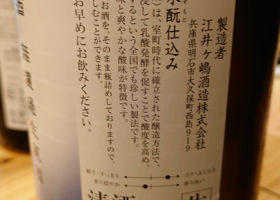 製造者
江井ヶ嶋酒造株式会社
兵庫県明石市大久保町西島919
水酛仕込み
は、室町時代に確立された醸造方法で、
浸して乳酸発酵を促すことで酸度を高め、
するという全国でも珍しい製法です。
と爽やかな酸味が特徴です。
お酒を、そのまま瓶詰めしておりますので、
しむことができます。
お早めにお飲みください。
軽さ・すっきり
コク・ふくらみ
香り穏やか
香り高い
清酒
生